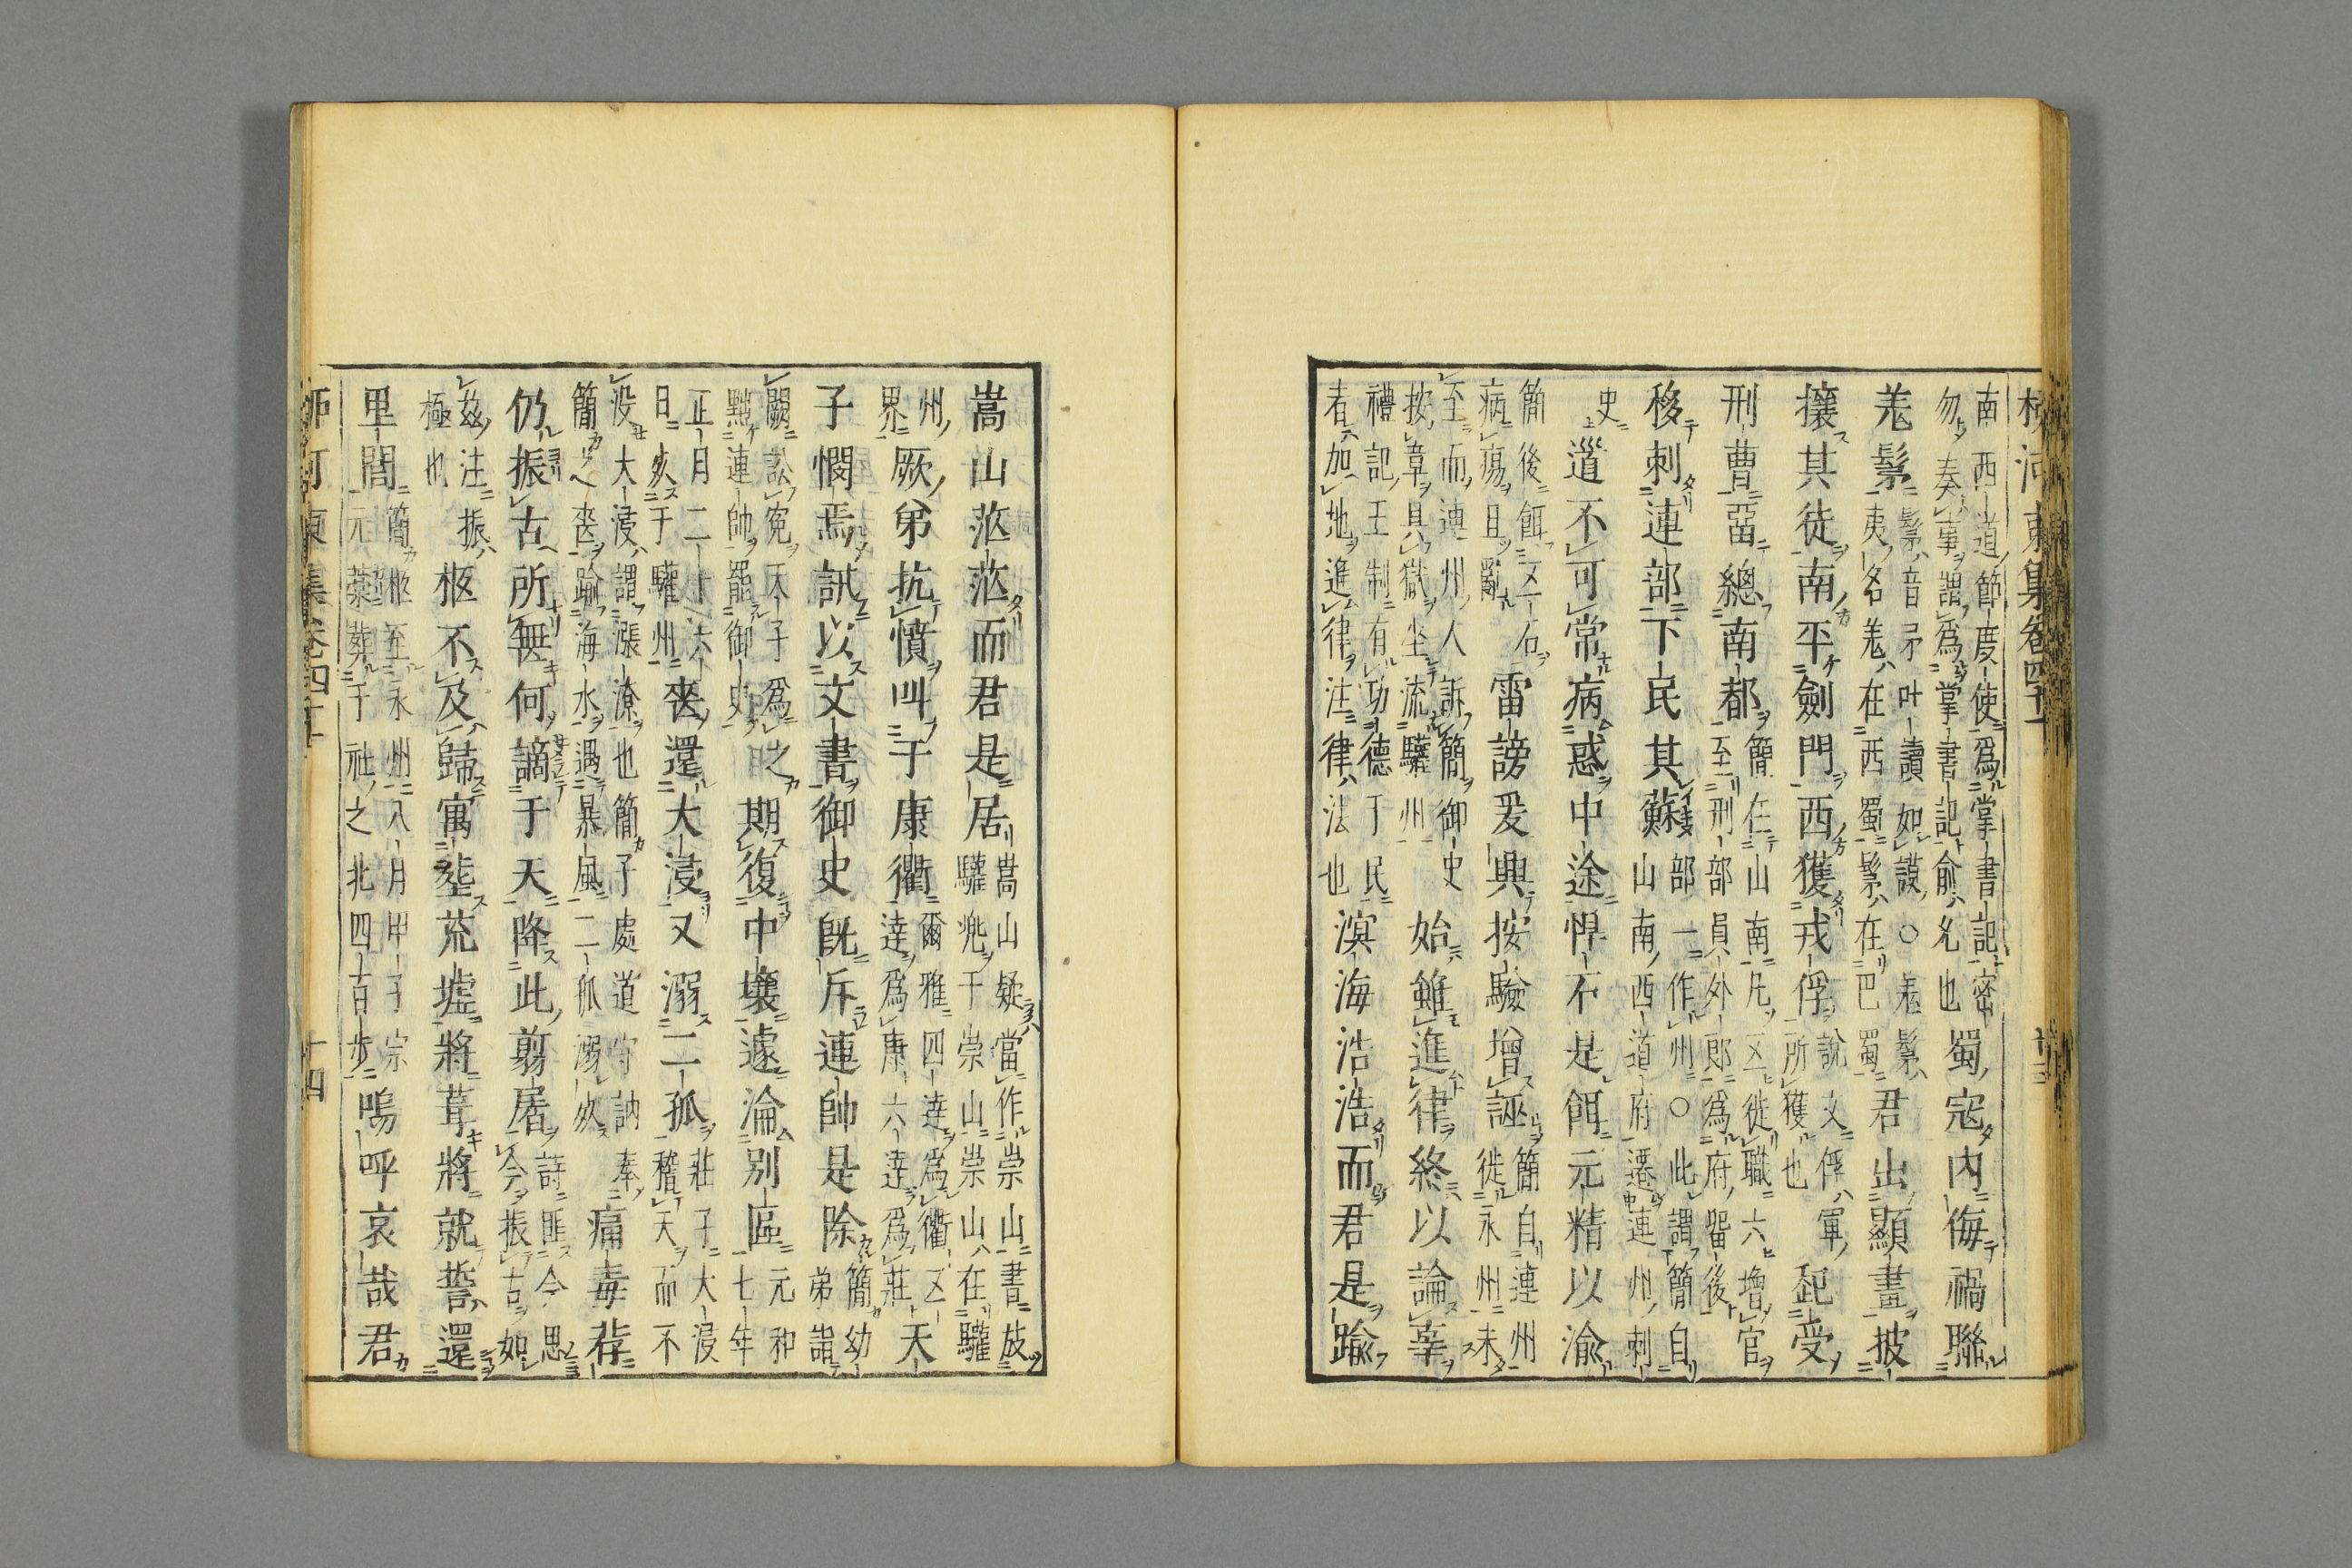 柳河東集卷四十一
南西道節度使爲掌書記密
勿奏事謂爲掌書記俞允也
蜀寇内侮禍聯
羗髳
髳音矛叶讀如謨○羗髳
夷名羗在西蜀髳在巴蜀
君出顯畫披
攘其徒南平劍門西獲戎俘
説文俘軍
所獲也
起受
刑曹畱總南都
簡在山南凡五徙職六增官
至刑部員外郎爲府畱後
移刺連部下民其蘇
部一作州○此謂簡自
山南西道府遷連州刺
史
道不可常病惑中途悍石是餌元精以渝
簡後餌五石
病瘍且亂
雷謗爰興按驗增誣
簡自連州
徙永州未
至而連州人訴簡御史
按章具獄坐流驩州
始雖進律終以論辜
禮記王制有功德于民
者加地進律注律法也
溟海浩浩而君是踰
嵩山茫茫而君是居
嵩山疑當作崇山書放
驩兠于崇山崇山在驩
州
界
厥弟抗憤叫于康衢
爾雅四達爲衢五
達爲康六達爲莊
天
子憫焉訊以文書御史旣斥連帥是除
簡幼
弟詣
闕訟寃天子爲之
黜連帥罷御史
期復中壤遽淪别區
元和
七年
正月二十六
日歿于驩州
喪還大浸又溺二孤
莊子大浸
稽天而不
没大浸謂漲潦也簡子處道守訥奉
簡之喪踰海水遇暴風二孤溺歿
痛毒荐
仍振古所無何謫于天降此翦屠
詩匪今思
今振古如
兹注振
極也
柩不及歸寓荒墟將葺將就誓還
里閭
簡柩至永州八月甲子宗
元藁葬于社之北四百步
嗚呼哀哉君
柳河東集卷四十一
十四